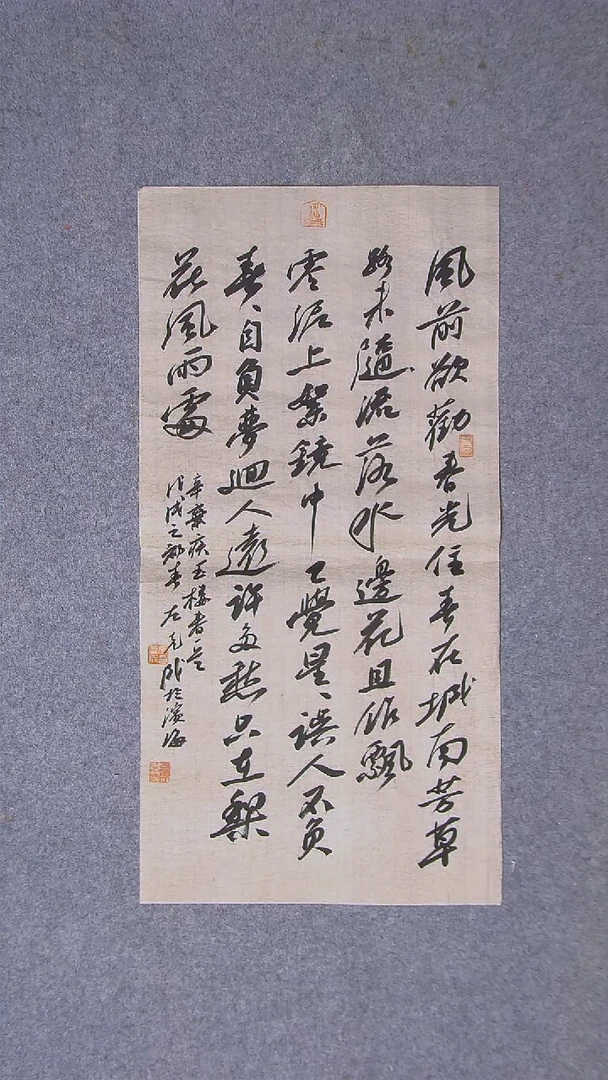 風前欲勸春光住春在城南芳草
路未隨流落水邊花且作飄
零泥上絮鏡中已覺星、誤人不負
春、自負夢迴人遠許多愁只在梨
花風雨處
辛棄疾玉楼春
戊戌之初春 於濱海